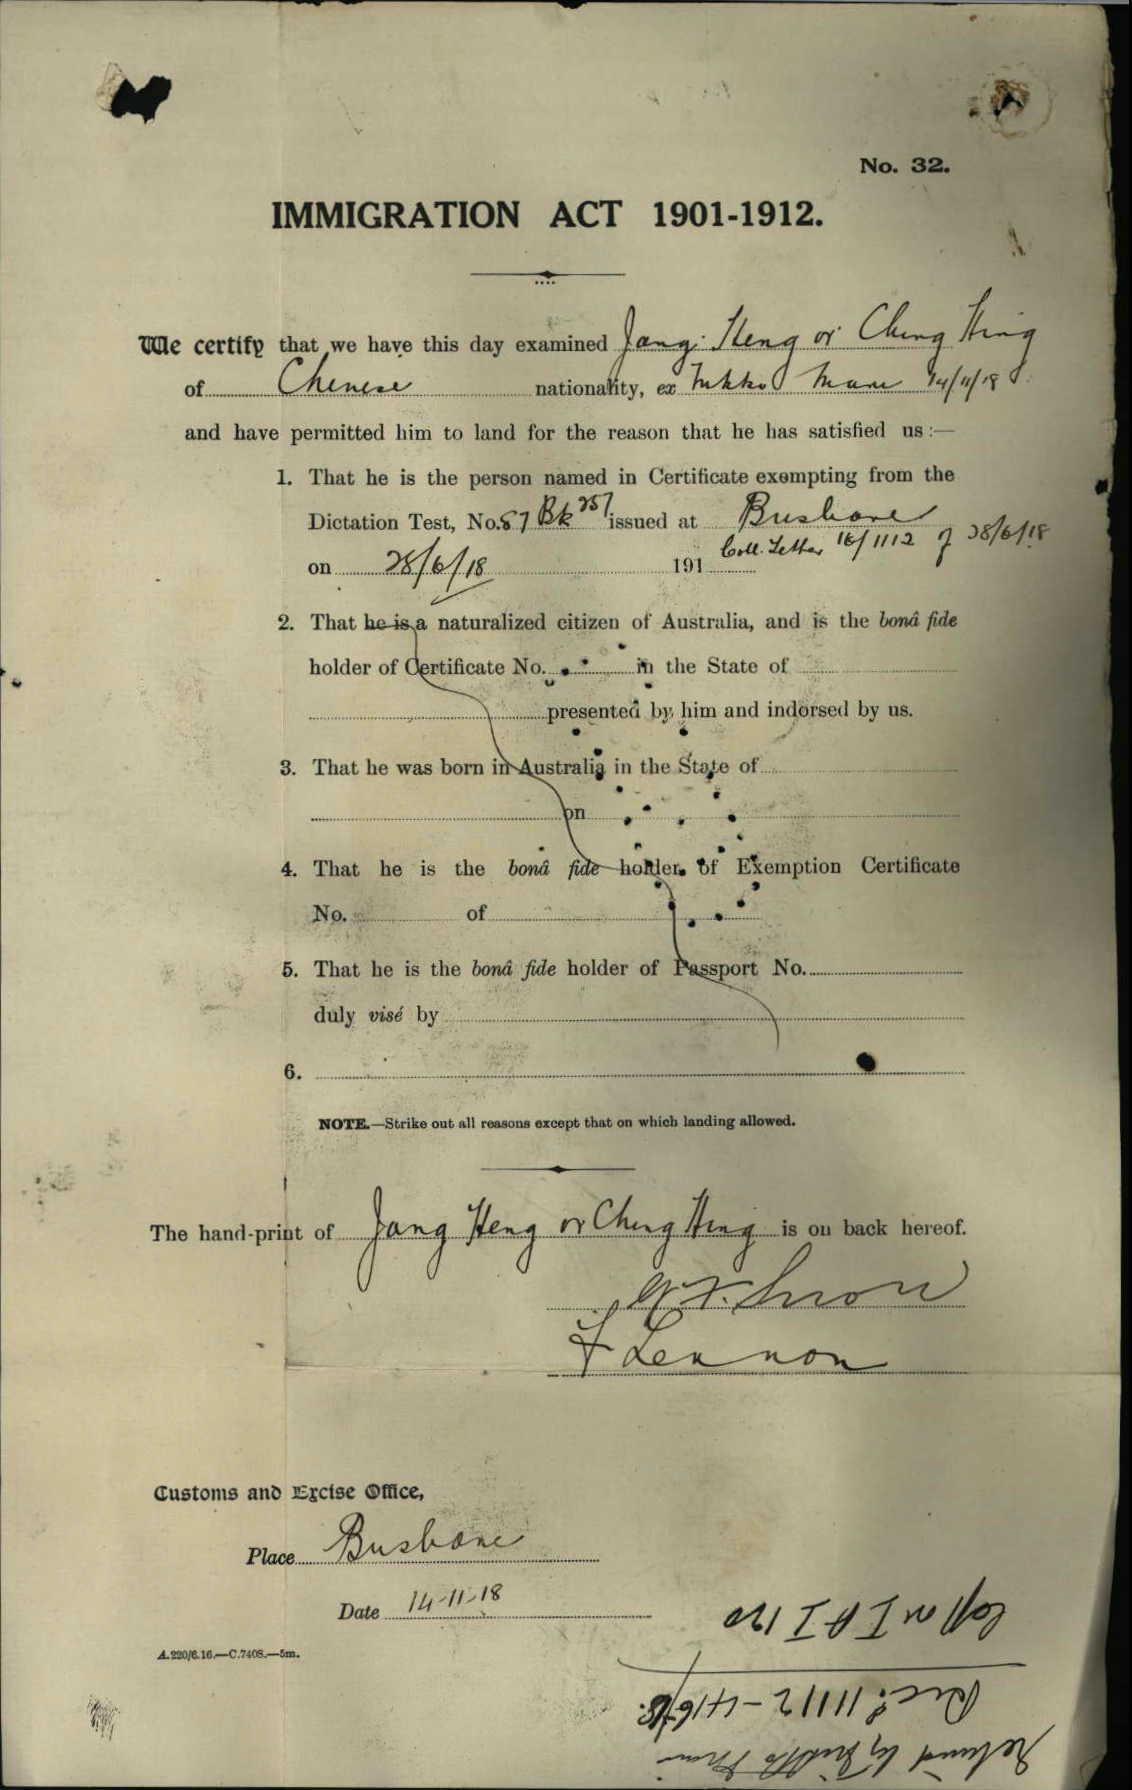 No. 32.
IMMIGRATION ACT 1901-1912.
We certify that we have this day examined Jang Heng or Ching Hing
of Chinese nationality, ex Nikko Maru 14/11/18
and have permitted him to land for the reason that he has satisfied us :—
1. That he is the person named in Certificate exempting from the
Dictation Test, No. 87 Bk 257 issued at Brisbane
Coll. Letter 18/1112 of 28/6/18
on 28/6/18 191
2. That he is a naturalized citizen of Australia, and is the bonâ fide
holder of Certificate No. in the State of
presented by him and indorsed by us.
3. That he was born in Australia in the State of
on
4. That he is the bonâ fide holder of Exemption Certificate
No. of
5. That he is the bonâ fide holder of Passport No.
duly visé by
6.
NOTE.—Strike out all reasons except that on which landing allowed.
The hand-print of Jang Heng or Ching Hing is on back hereof.
Snow
F Lennon
Customs and Excise Office,
Place Brisbane
Date 14-11-18
A.220/6.16.—C.7408.—5m.